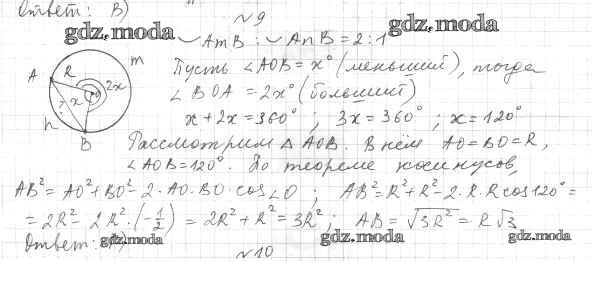 Ответ: В)
№9
gdz.moda
gdz.moda
◡AmB : ◡AnB = 2:1
Пусть ∠AOB = x° (меньший), тогда
∠BOA = 2x° (больший)
x + 2x = 360° ; 3x = 360° ; x = 120°
A R m O x 2x ? n B
Рассмотрим △AOB. В нём AO=BO=R,
∠AOB=120°. По теореме косинусов,
AB²=AO²+BO²-2·AO·BO·cos∠O ; AB²=R²+R²-2·R·R cos120° =
= 2R² - 2R²·(-1/2) = 2R²+R²=3R² ; AB = √3R² = R√3
Ответ:
gdz.moda
gdz.moda
gdz.moda
№10